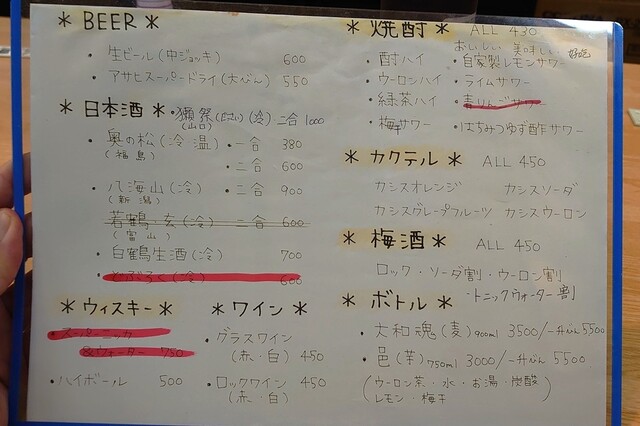 * BEER *
・生ビール(中ジョッキ) 600
・アサヒスーパードライ(大びん) 550
* 日本酒 *
・獺祭(冷) 二合 1000
(山口)
・奥の松(冷 温) ・一合 380
(福島)
・二合 600
・八海山(冷) ・二合 900
(新潟)
若鶴・玄(冷) 二合 600
(富山)
・白鶴生酒(冷) 700
・どぶろく(冷) 600
* ウィスキー *
・スーパーニッカ
&ウォーター 750
・ハイボール 500
* ワイン *
・グラスワイン
(赤・白) 450
・ロックワイン 450
(赤・白)
* 焼酎 * ALL 430
おいしい 美味しい 好吃
・酎ハイ ・自家製レモンサワー
・ウーロンハイ ・ライムサワー
・緑茶ハイ ・青りんごサワー
・梅干サワー ・はちみつゆず酢サワー
* カクテル * ALL 450
カシスオレンジ カシスソーダ
カシスグレープフルーツ カシスウーロン
* 梅酒 * ALL 450
ロック・ソーダ割・ウーロン割
・トニックウォーター割
* ボトル *
・大和魂(麦)900ml 3500/一升びん5500
・邑(芋)750ml 3000/一升びん 5500
(ウーロン茶・水・お湯・炭酸
レモン・梅干)